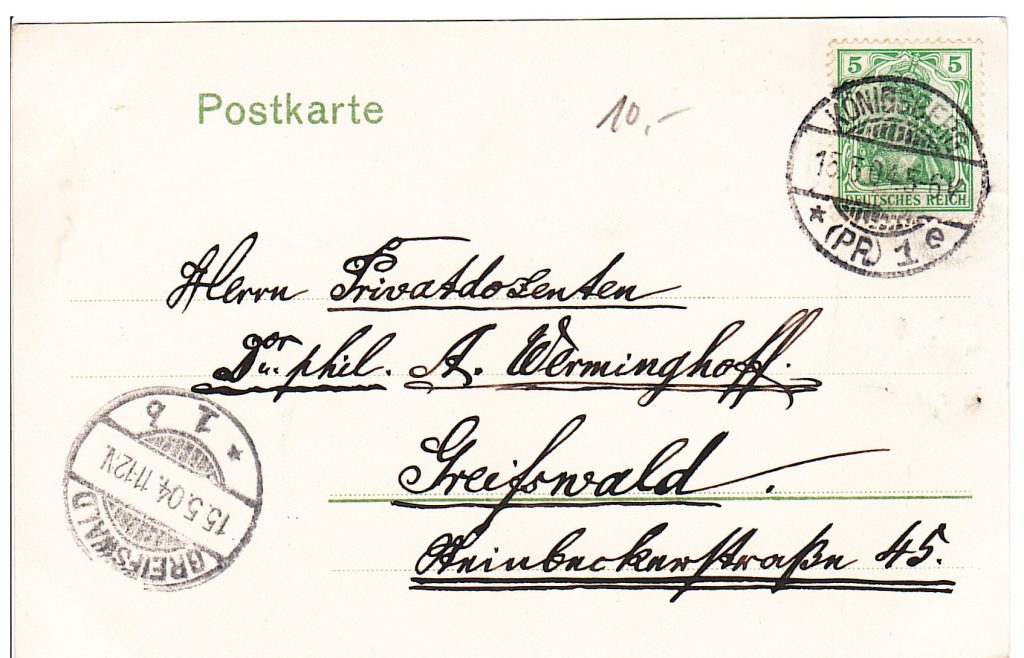 Postkarte
10.-
5 5
DEUTSCHES REICH
KÖNIGSBERG
15.5.04. 5-6V
* (PR) 1 e
Herrn Privatdozenten
Dr. phil. A. Werminghoff.
Greifswald.
Steinbeckerstraße 45.
GREIFSWALD
15.5.04. 11-12V.
* 1 b